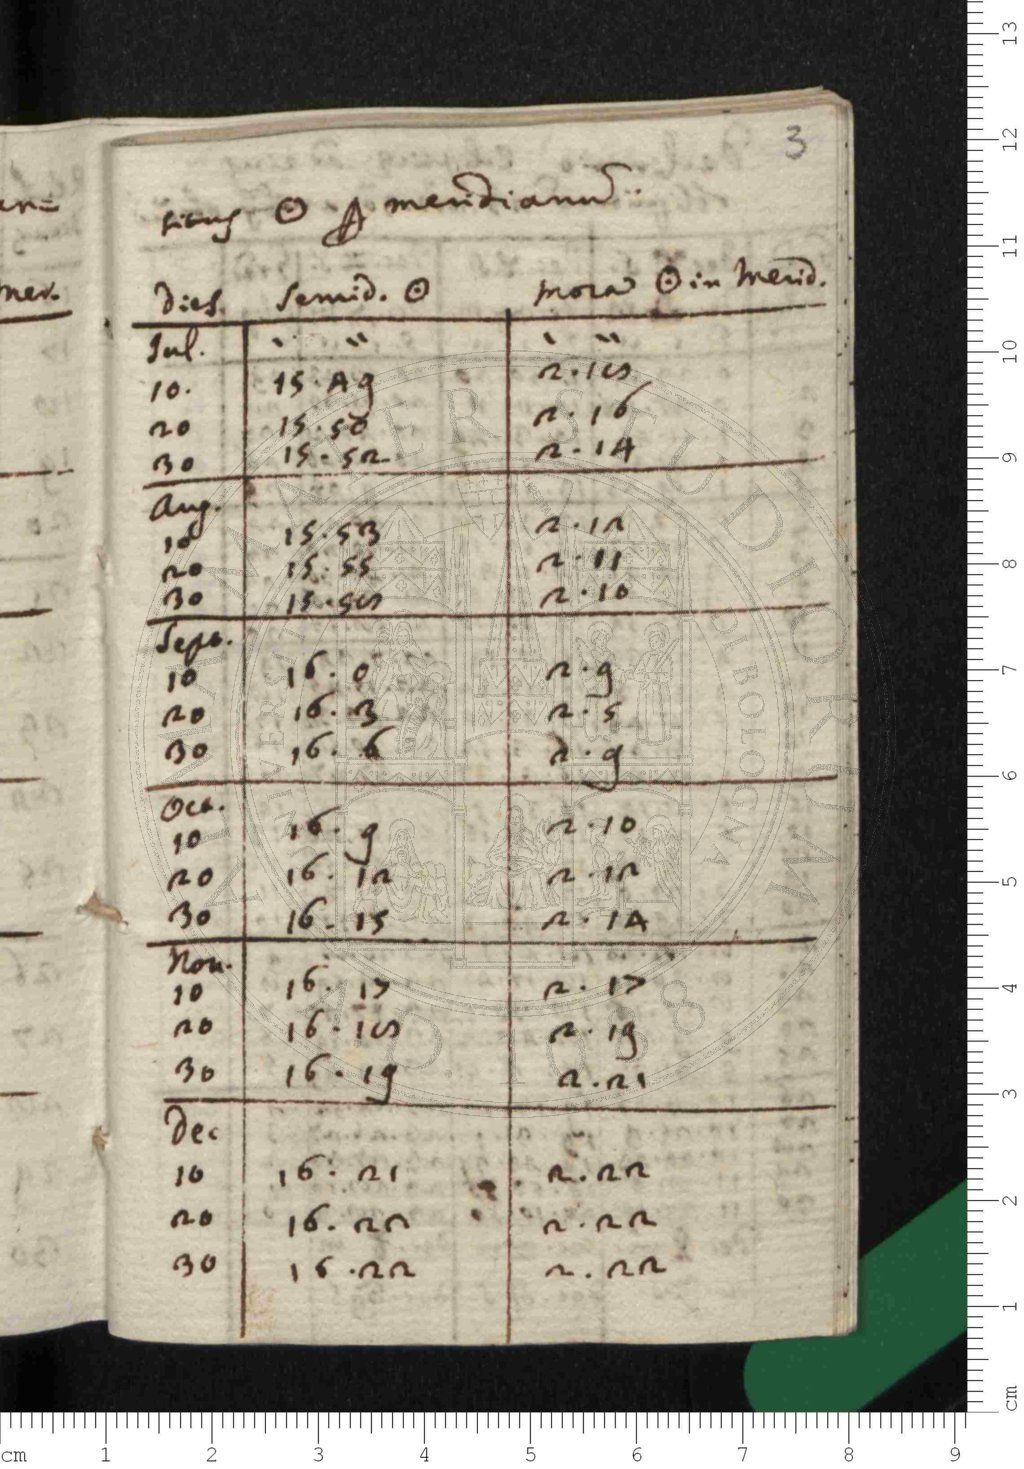 3
situs ☉ p meridianũ
Dies. Semid. ☉ mora ☉ in Merid.
Jul. ' '' ' ''
10. 15.49 2.18
20 15.50 2.16
30 15.52 2.14
Aug.
10 15.53 2.12
20 15.55 2.11
30 15.58 2.10
Sept.
10 16.0 2.9
20 16.3 2.5
30 16.6 2.9
Oct.
10 16.9 2.10
20 16.12 2.12
30 16.15 2.14
Nou.
10 16.17 2.17
20 16.18 2.19
30 16.19 2.21
Dec
10 16.21 2.22
20 16.22 2.22
30 16.22 2.22
mer.
ALMA MATER STUDIORUM
A.D. 1088
cm 1 2 3 4 5 6 7 8 9
cm 1 2 3 4 5 6 7 8 9 10 11 12 13